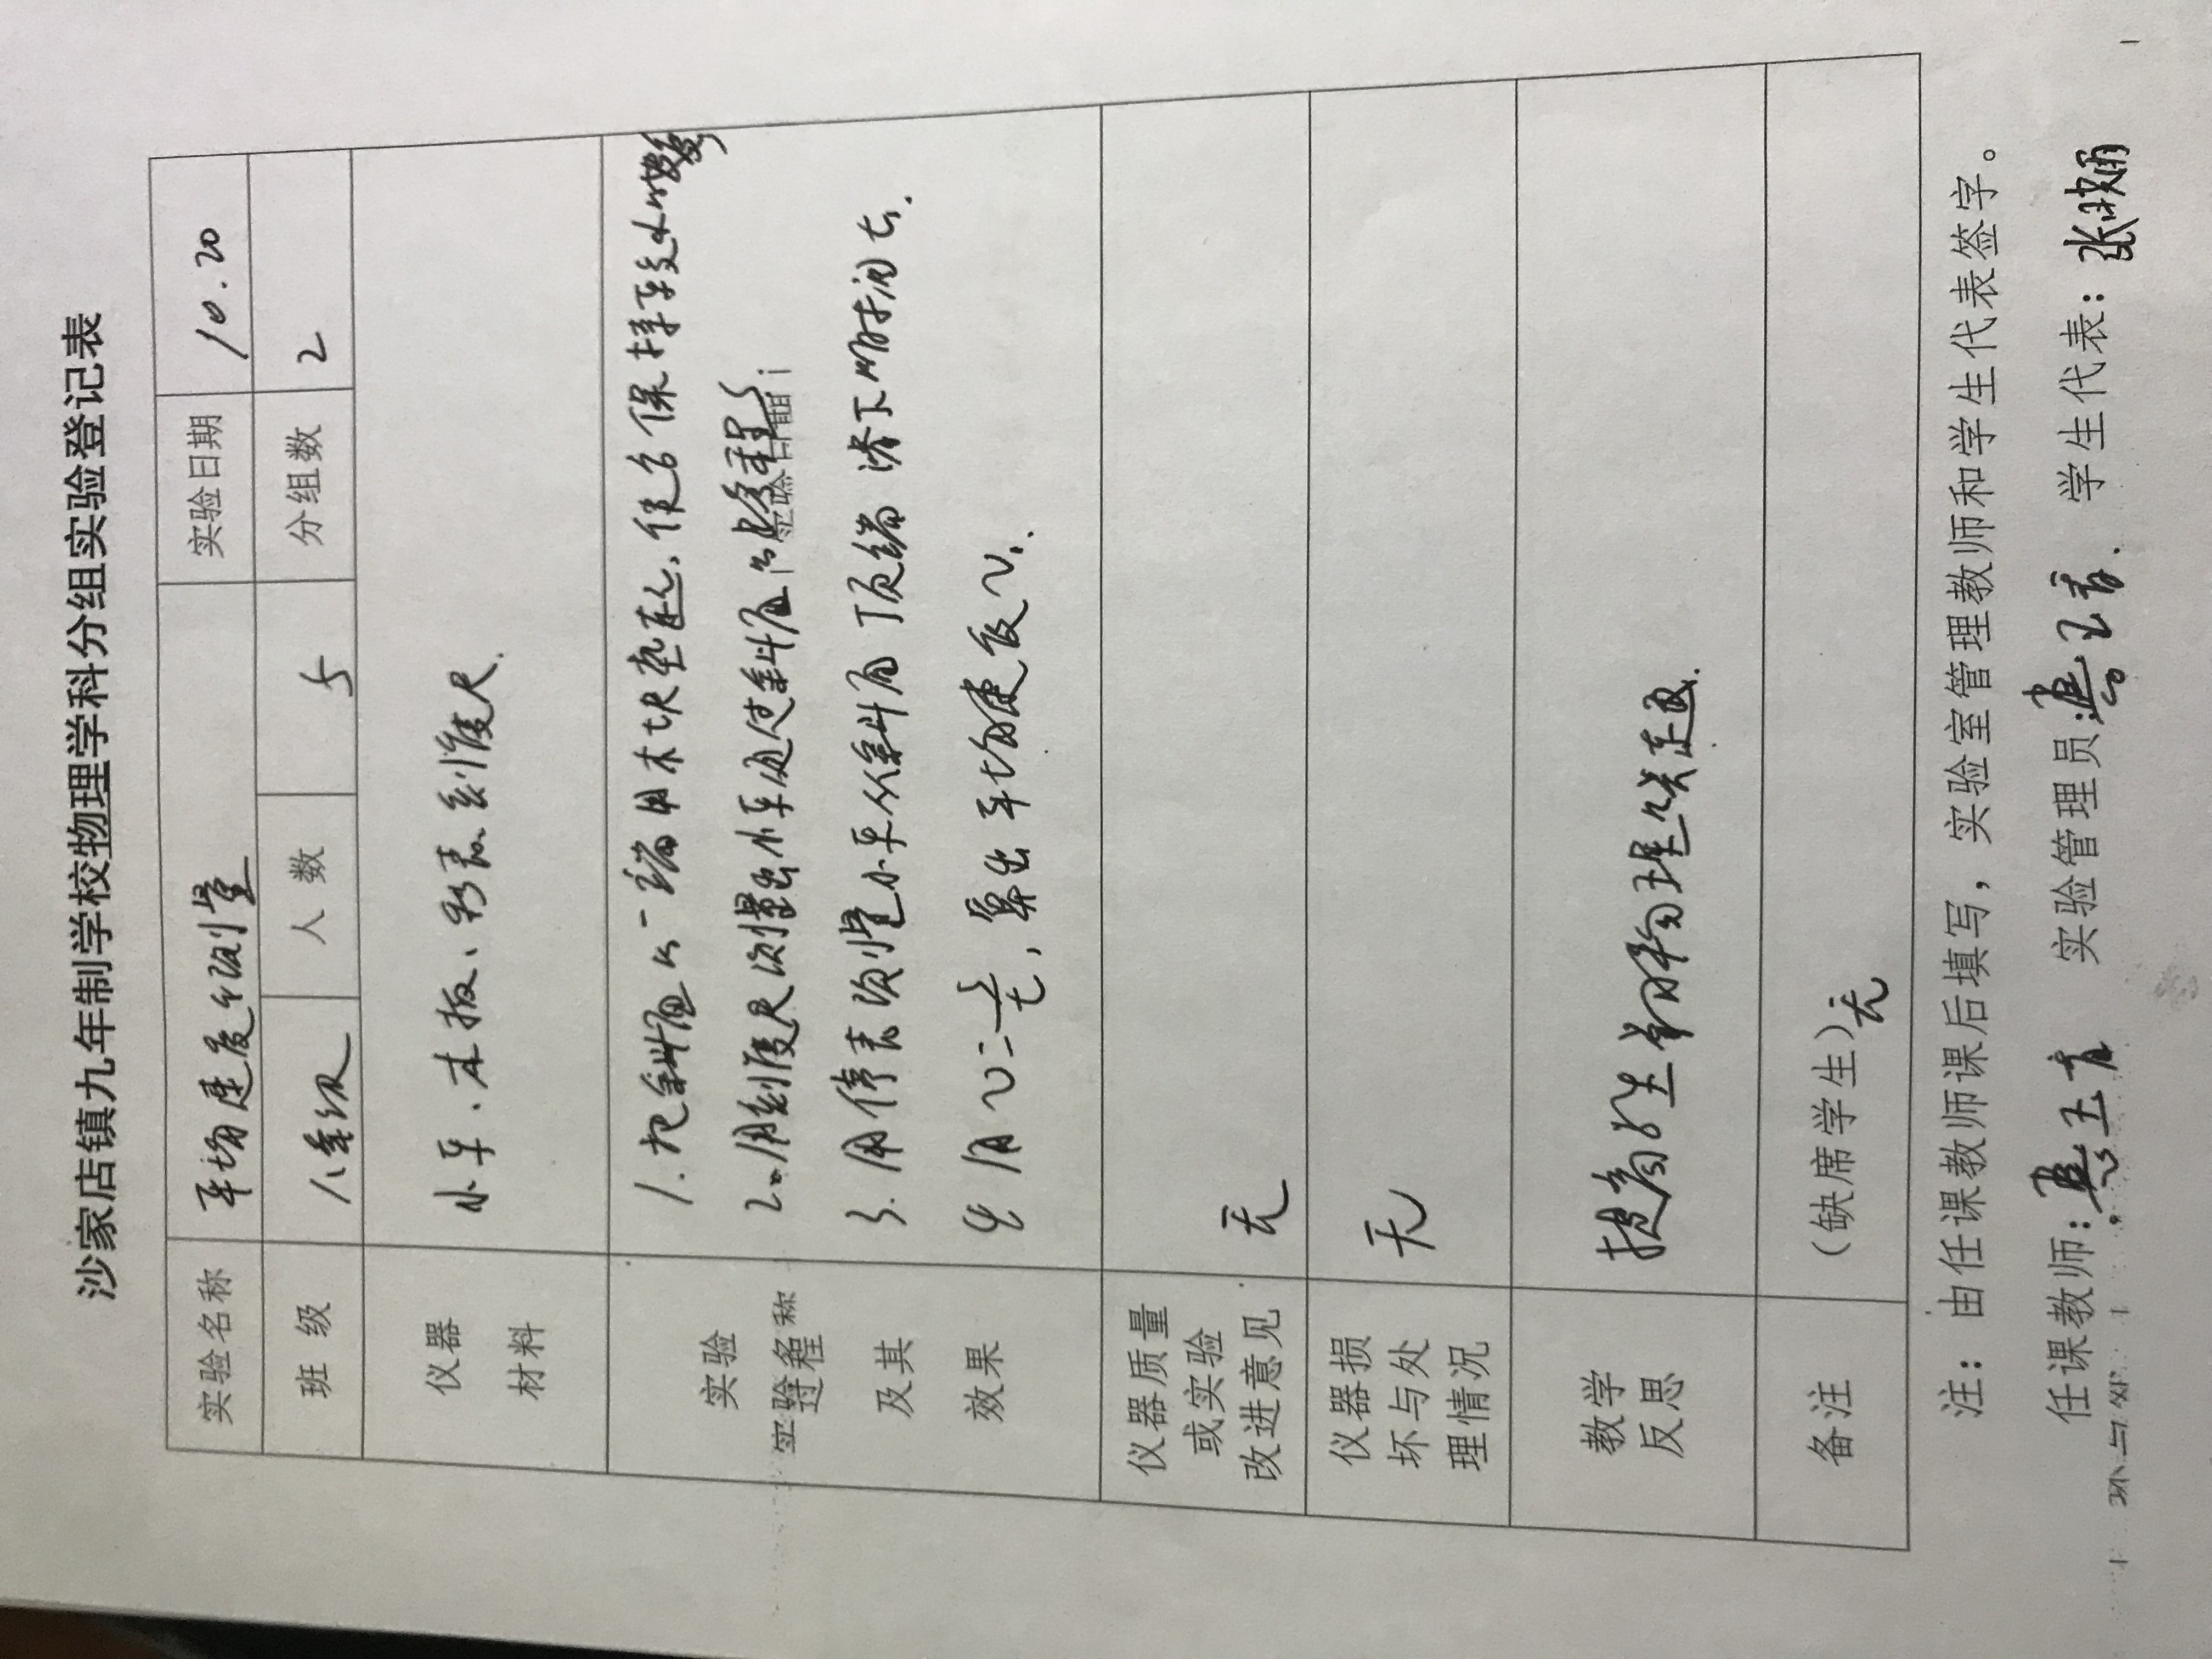 沙家店镇九年制学校物理学科分组实验登记表
实验名称 平均速度的测量 实验日期 10.20
班 级 八年级 人 数 5 分组数 2
仪器 材料 小车、木板、秒表、刻度尺.
实验 过程 及其 效果
1.把斜面的一端用木块垫起,使它保持
2.用刻度尺测量出小车通过斜面的路程S;
3.用停表测量小车从斜面顶端 滑下的时间t.
4 用 v=s/t,算出平均速度v.
仪器质量 或实验 改进意见 无
仪器损 坏与处 理情况 无
教学 反思 提高学生解物理 问题.
备注 (缺席学生)无
注:由任课教师课后填写,实验室管理教师和学生代表签字。
任课教师: 实验管理员: 学生代表:张